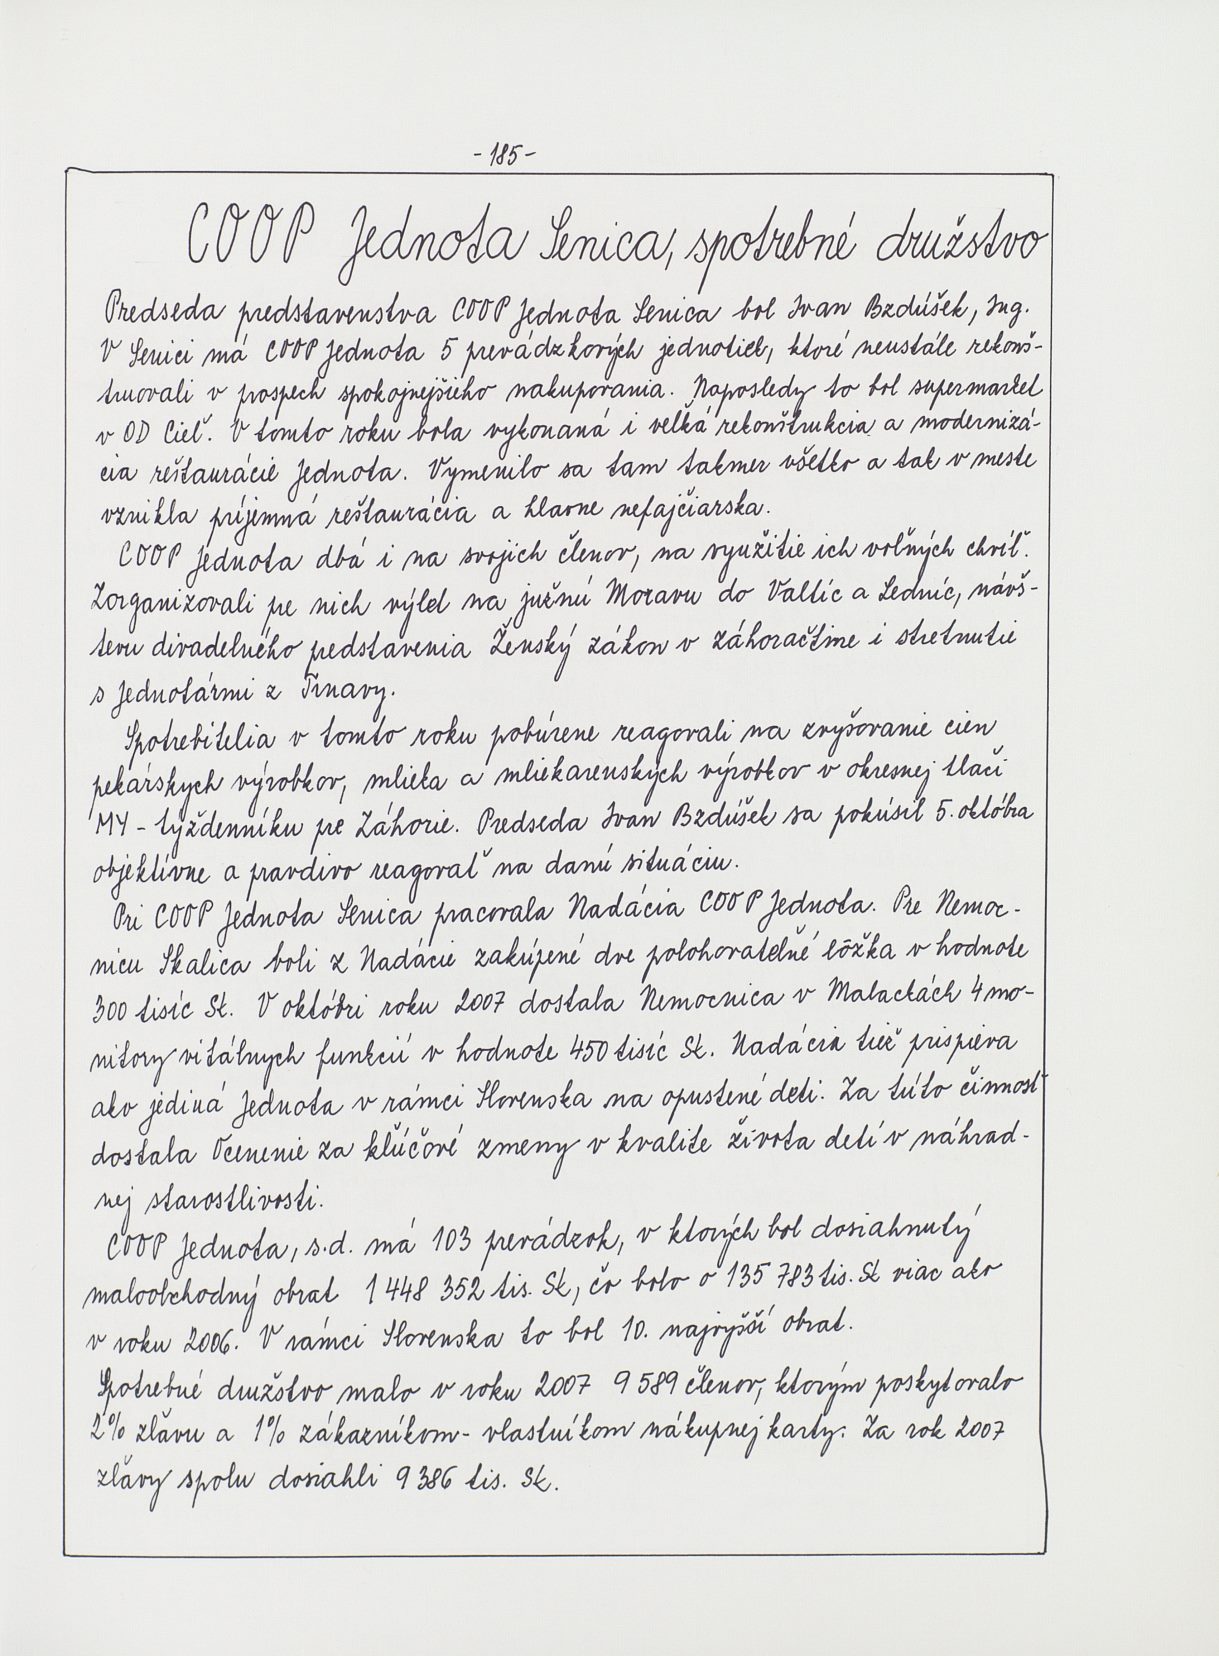 - 185 -
COOP Jednota Senica, spotrebné družstvo
Predseda predstavenstva COOP Jednota Senica bol Ivan Bzdúšek, Ing.
V Senici má COOP Jednota 5 prevádzkových jednotiek, ktoré neustále rekonš-
truovali v prospech spokojnejšieho nakupovania. Naposledy to bol supermarket
v OD Cieľ. V tomto roku bola vykonaná i veľká rekonštrukcia a modernizá-
cia reštaurácie Jednota. Vymenilo sa tam takmer všetko a tak v meste
vznikla príjemná reštaurácia a hlavne nefajčiarska.
COOP Jednota dbá i na svojich členov, na využitie ich voľných chvíľ.
Zorganizovali pre nich výlet na južnú Moravu do Valtíc a Ledníc, návš-
tevu divadelného predstavenia Ženský zákon v záhoráčtine i stretnutie
s Jednotármi z Trnavy.
Spotrebitelia v tomto roku pobúrene reagovali na zvyšovanie cien
pekárskych výrobkov, mlieka a mliekarenských výrobkov v okresnej tlači
MY - týždenníku pre Záhorie. Predseda Ivan Bzdúšek sa pokúsil 5. októbra
objektívne a pravdivo reagovať na danú situáciu.
Pri COOP Jednota Senica pracovala Nadácia COOP Jednota. Pre Nemoc-
nicu Skalica boli z Nadácie zakúpené dve polohovateľné lôžka v hodnote
300 tisíc Sk. V októbri roku 2007 dostala Nemocnica v Malackách 4 mo-
nitory vitálnych funkcií v hodnote 450 tisíc Sk. Nadácia tiež prispieva
ako jediná Jednota v rámci Slovenska na opustené deti. Za túto činnosť
dostala Ocenenie za kľúčové zmeny v kvalite života detí v náhrad-
nej starostlivosti.
COOP Jednota, s.d. má 103 prevádzok, v ktorých bol dosiahnutý
maloobchodný obrat 1 448 352 tis. Sk, čo bolo o 135 783 tis. Sk viac ako
v roku 2006. V rámci Slovenska to bol 10. najvyšší obrat.
Spotrebné družstvo malo v roku 2007 9 589 členov, ktorým poskytovalo
2% zľavu a 1% zákazníkom - vlastníkom nákupnej karty. Za rok 2007
zľavy spolu dosiahli 9 386 tis. Sk.